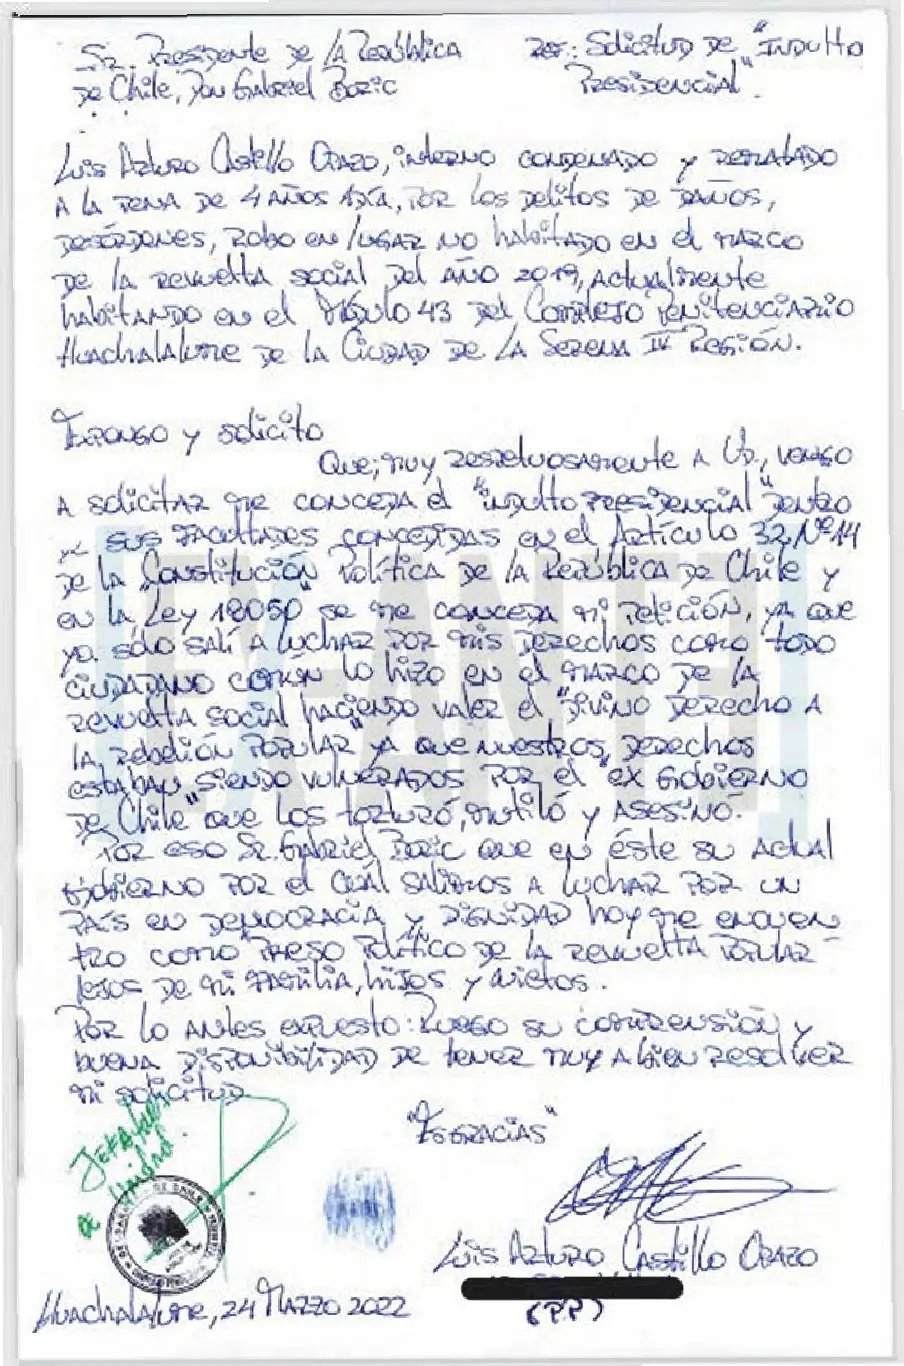 Sr. Presidente de la República
de Chile, Don Gabriel Boric
Ref: Solicitud de "Indulto
Presidencial".
Luis Arturo Castillo Orazo, interno condenado y rematado
a la pena de 4 años 1 día, por los delitos de daños,
desórdenes, robo en lugar no habitado en el marco
de la revuelta social del año 2019, actualmente
habitando en el Módulo 43 del Complejo Penitenciario
Huachalalume de la Ciudad de La Serena IV Región.
Expongo y solicito
Que; muy respetuosamente a Ud., vengo
a solicitar me conceda el "indulto presidencial" dentro
de sus facultades concedidas en el Artículo 32, Nº 14
de la "Constitución Política de la República de Chile y
en la Ley 18050" se me conceda mi petición, ya que
yo sólo salí a luchar por mis derechos como todo
ciudadano común lo hizo en el marco de la
revuelta social haciendo valer el "divino derecho a
la rebelión popular" ya que nuestros derechos
estaban siendo vulnerados por el "ex Gobierno
de Chile" que los torturó, mutiló y asesinó.
Por eso Sr. Gabriel Boric que en éste su actual
gobierno por el cual salimos a luchar por un
país en democracia y dignidad hoy me encuen
tro como Preso Político de la revuelta popular
lejos de mi familia, hijos y nietos.
Por lo antes expuesto: Ruego su comprensión y
buena disponibilidad de tener muy a bien resolver
mi solicitud
"Es gracias"
de unidad
EX-ANTE
Luis Arturo Castillo Orazo
(P.P)
Huachalalume, 24 Marzo 2022